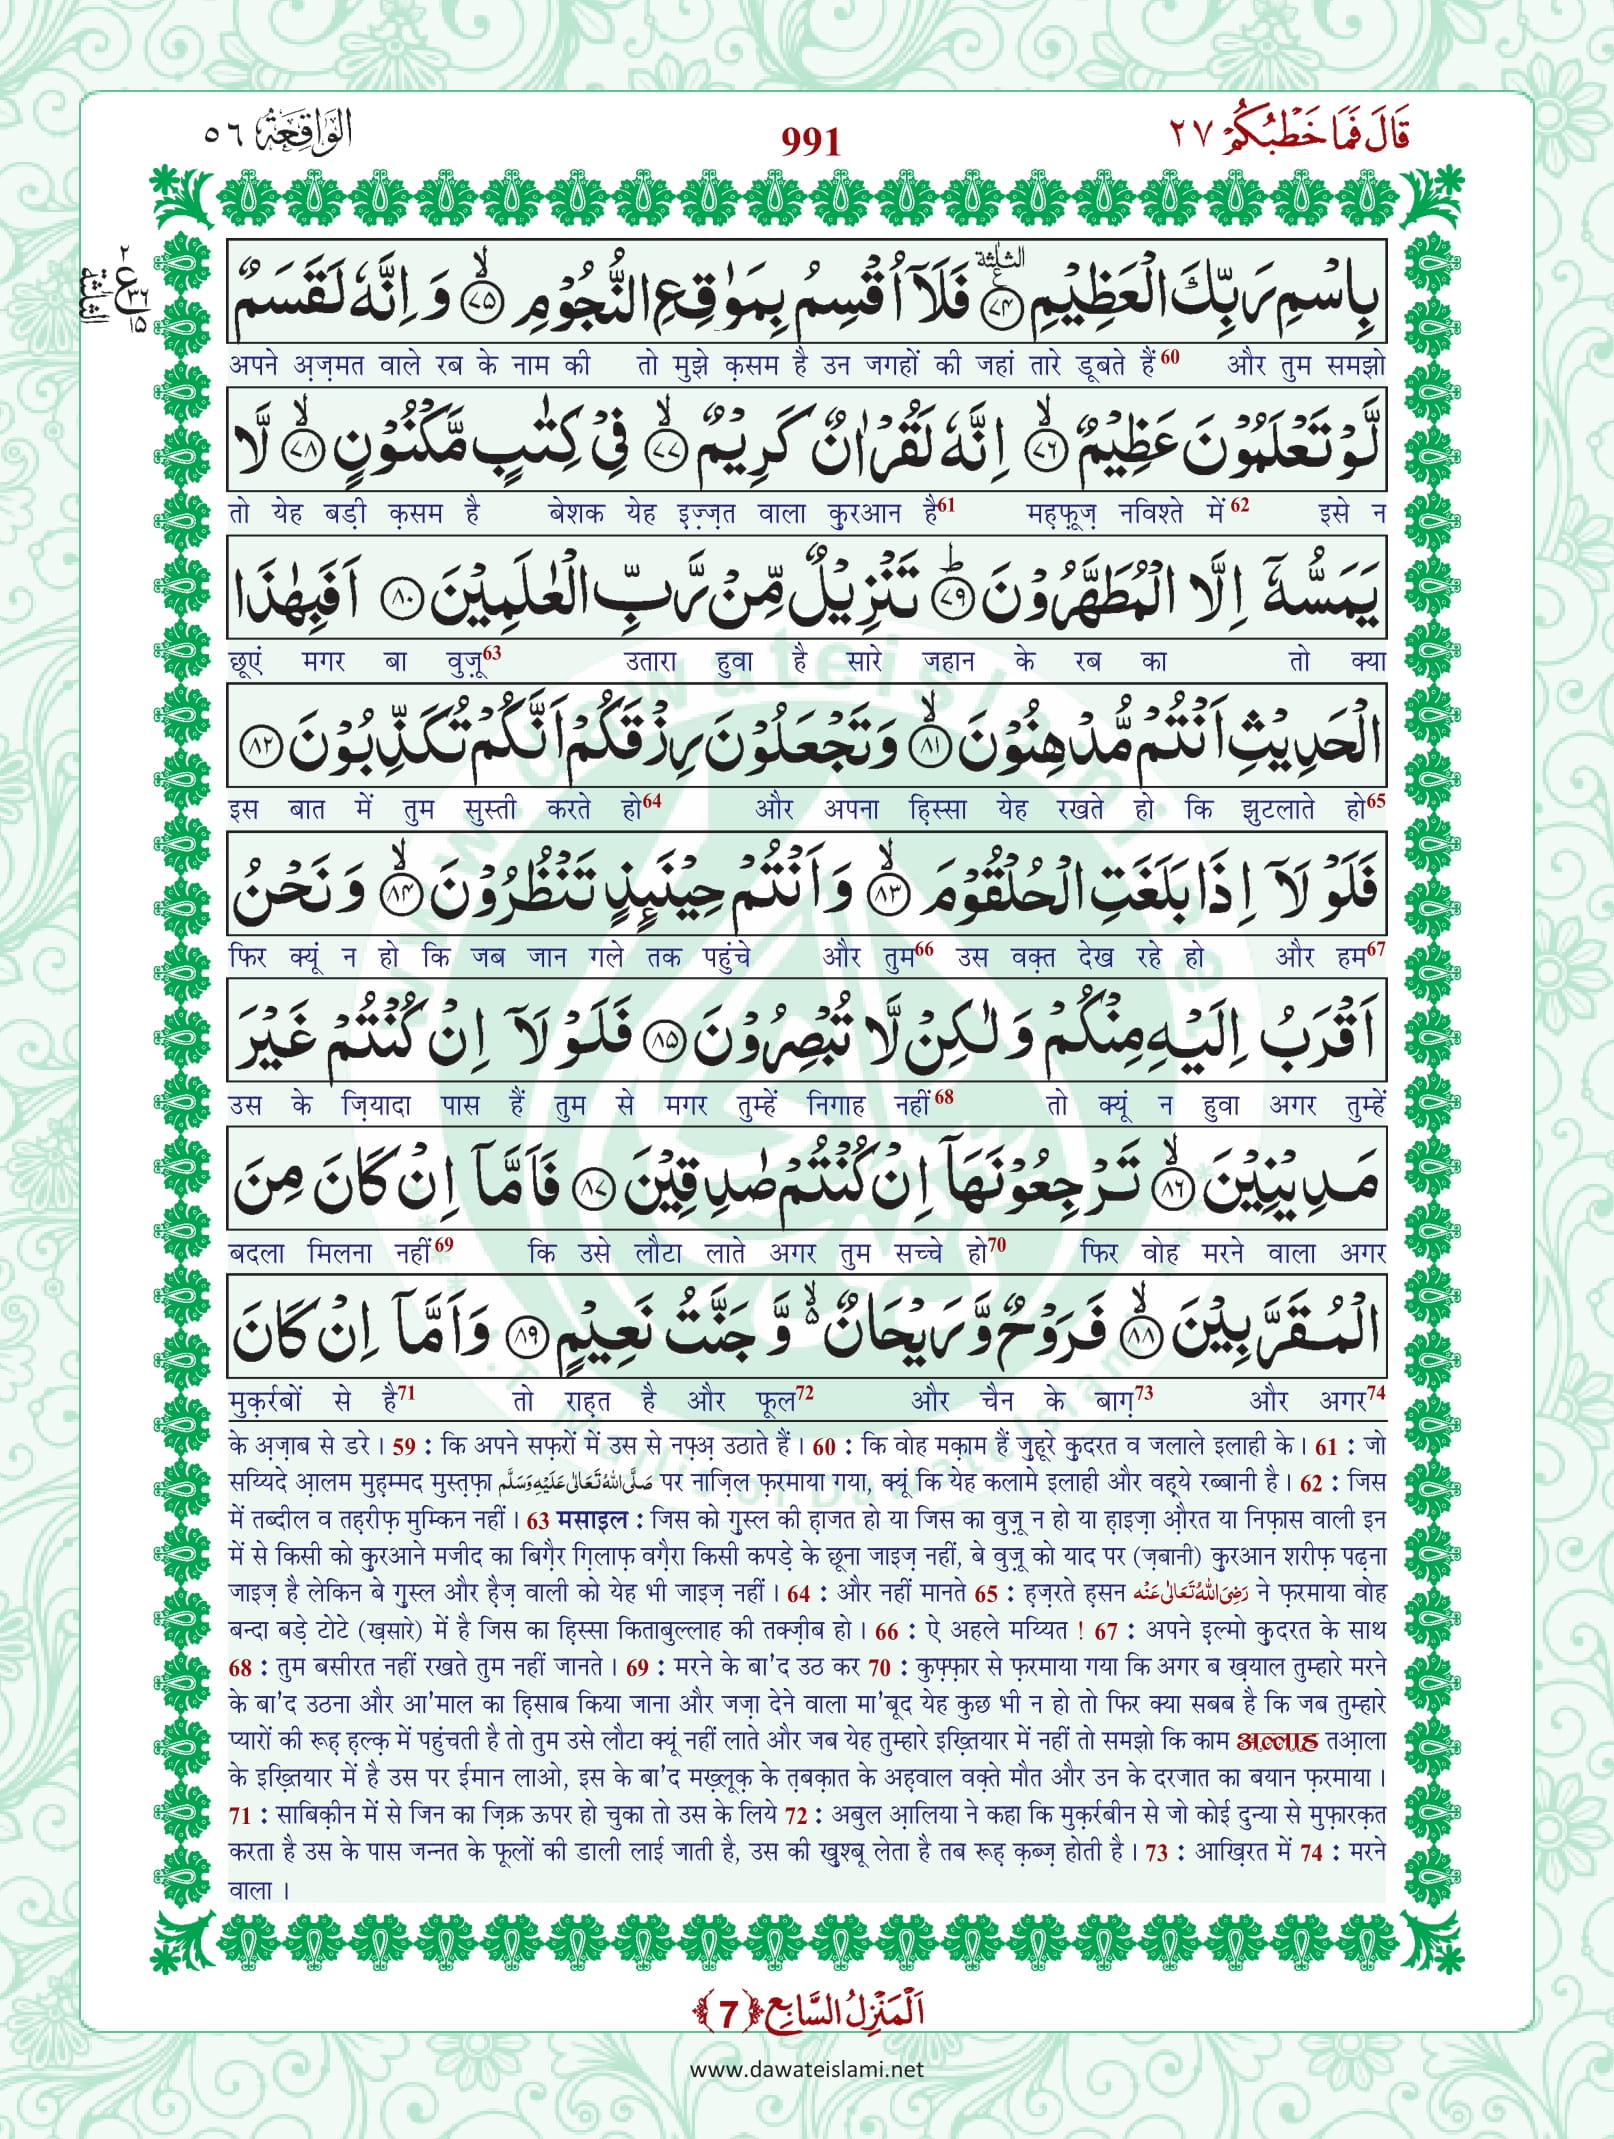 قَالَ فَمَا خَطْبُكُمْ ٢٧
991
الْوَاقِعَة ٥٦
بِاسْمِ رَبِّكَ الْعَظِيْمِ ﴿٧٤﴾ فَلَاۤ اُقْسِمُ بِمَوٰقِعِ النُّجُوْمِ ﴿٧٥﴾ وَ اِنَّهٗ لَقَسَمٌ
अपने अ़ज़मत वाले रब के नाम की तो मुझे क़सम है उन जगहों की जहां तारे डूबते हैं60 और तुम समझो
لَّوْ تَعْلَمُوْنَ عَظِيْمٌ ﴿٧٦﴾ اِنَّهٗ لَقُرْاٰنٌ كَرِيْمٌ ﴿٧٧﴾ فِيْ كِتٰبٍ مَّكْنُوْنٍ ﴿٧٨﴾ لَّا
तो येह बड़ी क़सम है बेशक येह इ़ज़्ज़त वाला क़ुरआन है61 मह़फ़ूज़ नविश्ते में62 इसे न
يَمَسُّهٗۤ اِلَّا الْمُطَهَّرُوْنَ ﴿٧٩﴾ تَنْزِيْلٌ مِّنْ رَّبِّ الْعٰلَمِيْنَ ﴿٨٠﴾ اَفَبِهٰذَا
छूएं मगर बा वुज़ू63 उतारा हुवा है सारे जहान के रब का तो क्या
الْحَدِيْثِ اَنْتُمْ مُّدْهِنُوْنَ ﴿٨١﴾ وَ تَجْعَلُوْنَ رِزْقَكُمْ اَنَّكُمْ تُكَذِّبُوْنَ ﴿٨٢﴾
इस बात में तुम सुस्ती करते हो64 और अपना हि़स्सा येह रखते हो कि झुटलाते हो65
فَلَوْ لَاۤ اِذَا بَلَغَتِ الْحُلْقُوْمَ ﴿٨٣﴾ وَ اَنْتُمْ حِيْنَىِٕذٍ تَنْظُرُوْنَ ﴿٨٤﴾ وَ نَحْنُ
फिर क्यूं न हो कि जब जान गले तक पहुंचे और तुम66 उस वक़्त देख रहे हो और हम67
اَقْرَبُ اِلَيْهِ مِنْكُمْ وَ لٰكِنْ لَّا تُبْصِرُوْنَ ﴿٨٥﴾ فَلَوْ لَاۤ اِنْ كُنْتُمْ غَيْرَ
उस के ज़ियादा पास हैं तुम से मगर तुम्हें निगाह नहीं68 तो क्यूं न हुवा अगर तुम्हें
مَدِيْنِيْنَ ﴿٨٦﴾ تَرْجِعُوْنَهَاۤ اِنْ كُنْتُمْ صٰدِقِيْنَ ﴿٨٧﴾ فَاَمَّاۤ اِنْ كَانَ مِنَ
बदला मिलना नहीं69 कि उसे लौटा लाते अगर तुम सच्चे हो70 फिर वोह मरने वाला अगर
الْمُقَرَّبِيْنَ ﴿٨٨﴾ فَرَوْحٌ وَّ رَيْحَانٌ ۙ وَّ جَنَّتُ نَعِيْمٍ ﴿٨٩﴾ وَ اَمَّاۤ اِنْ كَانَ
मुक़र्रबों से है71 तो राह़त है और फूल72 और चैन के बाग़73 और अगर74
के अ़ज़ाब से डरे । 59 : कि अपने सफ़रों में उस से नफ़्अ़ उठाते हैं । 60 : कि वोह मक़ाम हैं ज़ुहूरे क़ुदरत व जलाले इलाही के । 61 : जो
सय्यिदे आ़लम मुह़म्मद मुस्त़फ़ा صَلَّى اللهُ تَعَالٰى عَلَيْهِ وَسَلَّم पर नाज़िल फ़रमाया गया, क्यूं कि येह कलामे इलाही और वह़्ये रब्बानी है । 62 : जिस
में तब्दील व तह़रीफ़ मुम्किन नहीं । 63 मसाइल : जिस को ग़ुस्ल की ह़ाजत हो या जिस का वुज़ू न हो या ह़ाइज़ा औ़रत या निफ़ास वाली इन
में से किसी को क़ुरआने मजीद का बिग़ैर ग़िलाफ़ वग़ैरा किसी कपड़े के छूना जाइज़ नहीं, बे वुज़ू को याद पर (ज़बानी) क़ुरआन शरीफ़ पढ़ना
जाइज़ है लेकिन बे ग़ुस्ल और ह़ैज़ वाली को येह भी जाइज़ नहीं । 64 : और नहीं मानते 65 : ह़ज़रते ह़सन رَضِىَ اللهُ تَعَالٰى عَنْه ने फ़रमाया वोह
बन्दा बड़े टोटे (ख़सारे) में है जिस का हि़स्सा किताबुल्लाह की तक्ज़ीब हो । 66 : ऐ अहले मय्यित ! 67 : अपने इ़ल्मो क़ुदरत के साथ
68 : तुम बसीरत नहीं रखते तुम नहीं जानते । 69 : मरने के बा'द उठ कर 70 : कुफ़्फ़ार से फ़रमाया गया कि अगर ब ख़याल तुम्हारे मरने
के बा'द उठना और आ'माल का हि़साब किया जाना और जज़ा देने वाला मा'बूद येह कुछ भी न हो तो फिर क्या सबब है कि जब तुम्हारे
प्यारों की रूह़ ह़ल्क़ में पहुंचती है तो तुम उसे लौटा क्यूं नहीं लाते और जब येह तुम्हारे इख़्तियार में नहीं तो समझो कि काम अल्लाह तआ़ला
के इख़्तियार में है उस पर ईमान लाओ, इस के बा'द मख़्लूक़ के त़बक़ात के अह़वाल वक़्ते मौत और उन के दरजात का बयान फ़रमाया ।
71 : साबिक़ीन में से जिन का ज़िक्र ऊपर हो चुका तो उस के लिये 72 : अबुल आ़लिया ने कहा कि मुक़र्रबीन से जो कोई दुन्या से मुफ़ारक़त
करता है उस के पास जन्नत के फूलों की डाली लाई जाती है, उस की ख़ुश्बू लेता है तब रूह़ क़ब्ज़ होती है । 73 : आख़िरत में 74 : मरने
वाला ।
اَلْمَنْزِلُ السَّابِع ﴿7﴾
www.dawateislami.net